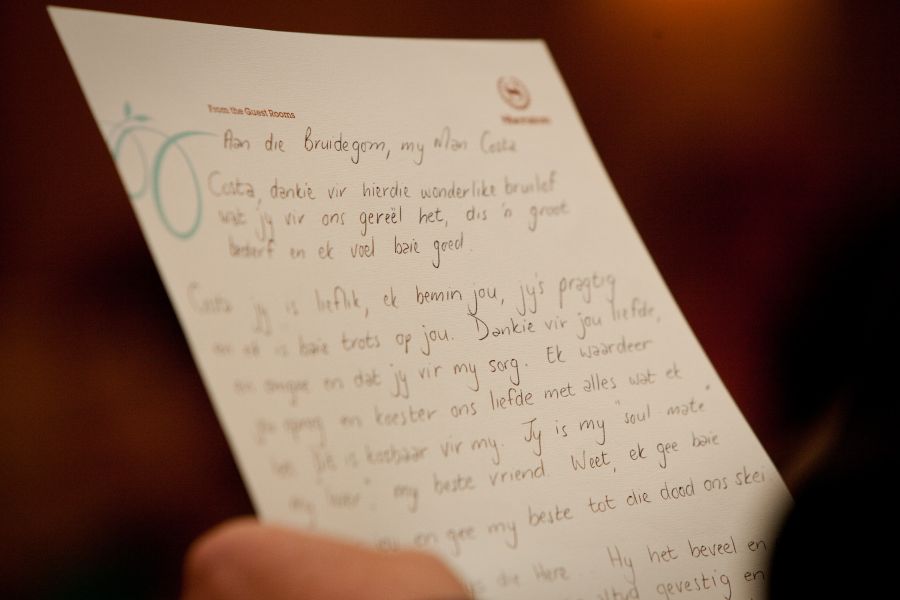 From the Guest Rooms
Aan die Bruidegom, my Man Costa
Costa, dankie vir hierdie wonderlike bruilof
wat jy vir ons gereël het, dis 'n groot
en ek voel baie goed.
Costa jy is lieflik, ek bemin jou, jy's pragtig
en ek is baie trots op jou. Dankie vir jou liefde,
en dat jy vir my sorg. Ek waardeer
en koester ons liefde met alles wat ek
is kosbaar vir my. Jy is my "soul mate"
my beste vriend. Weet, ek gee baie
en gee my beste tot die dood ons skei.
die Here. Hy het beveel en
gevestig en